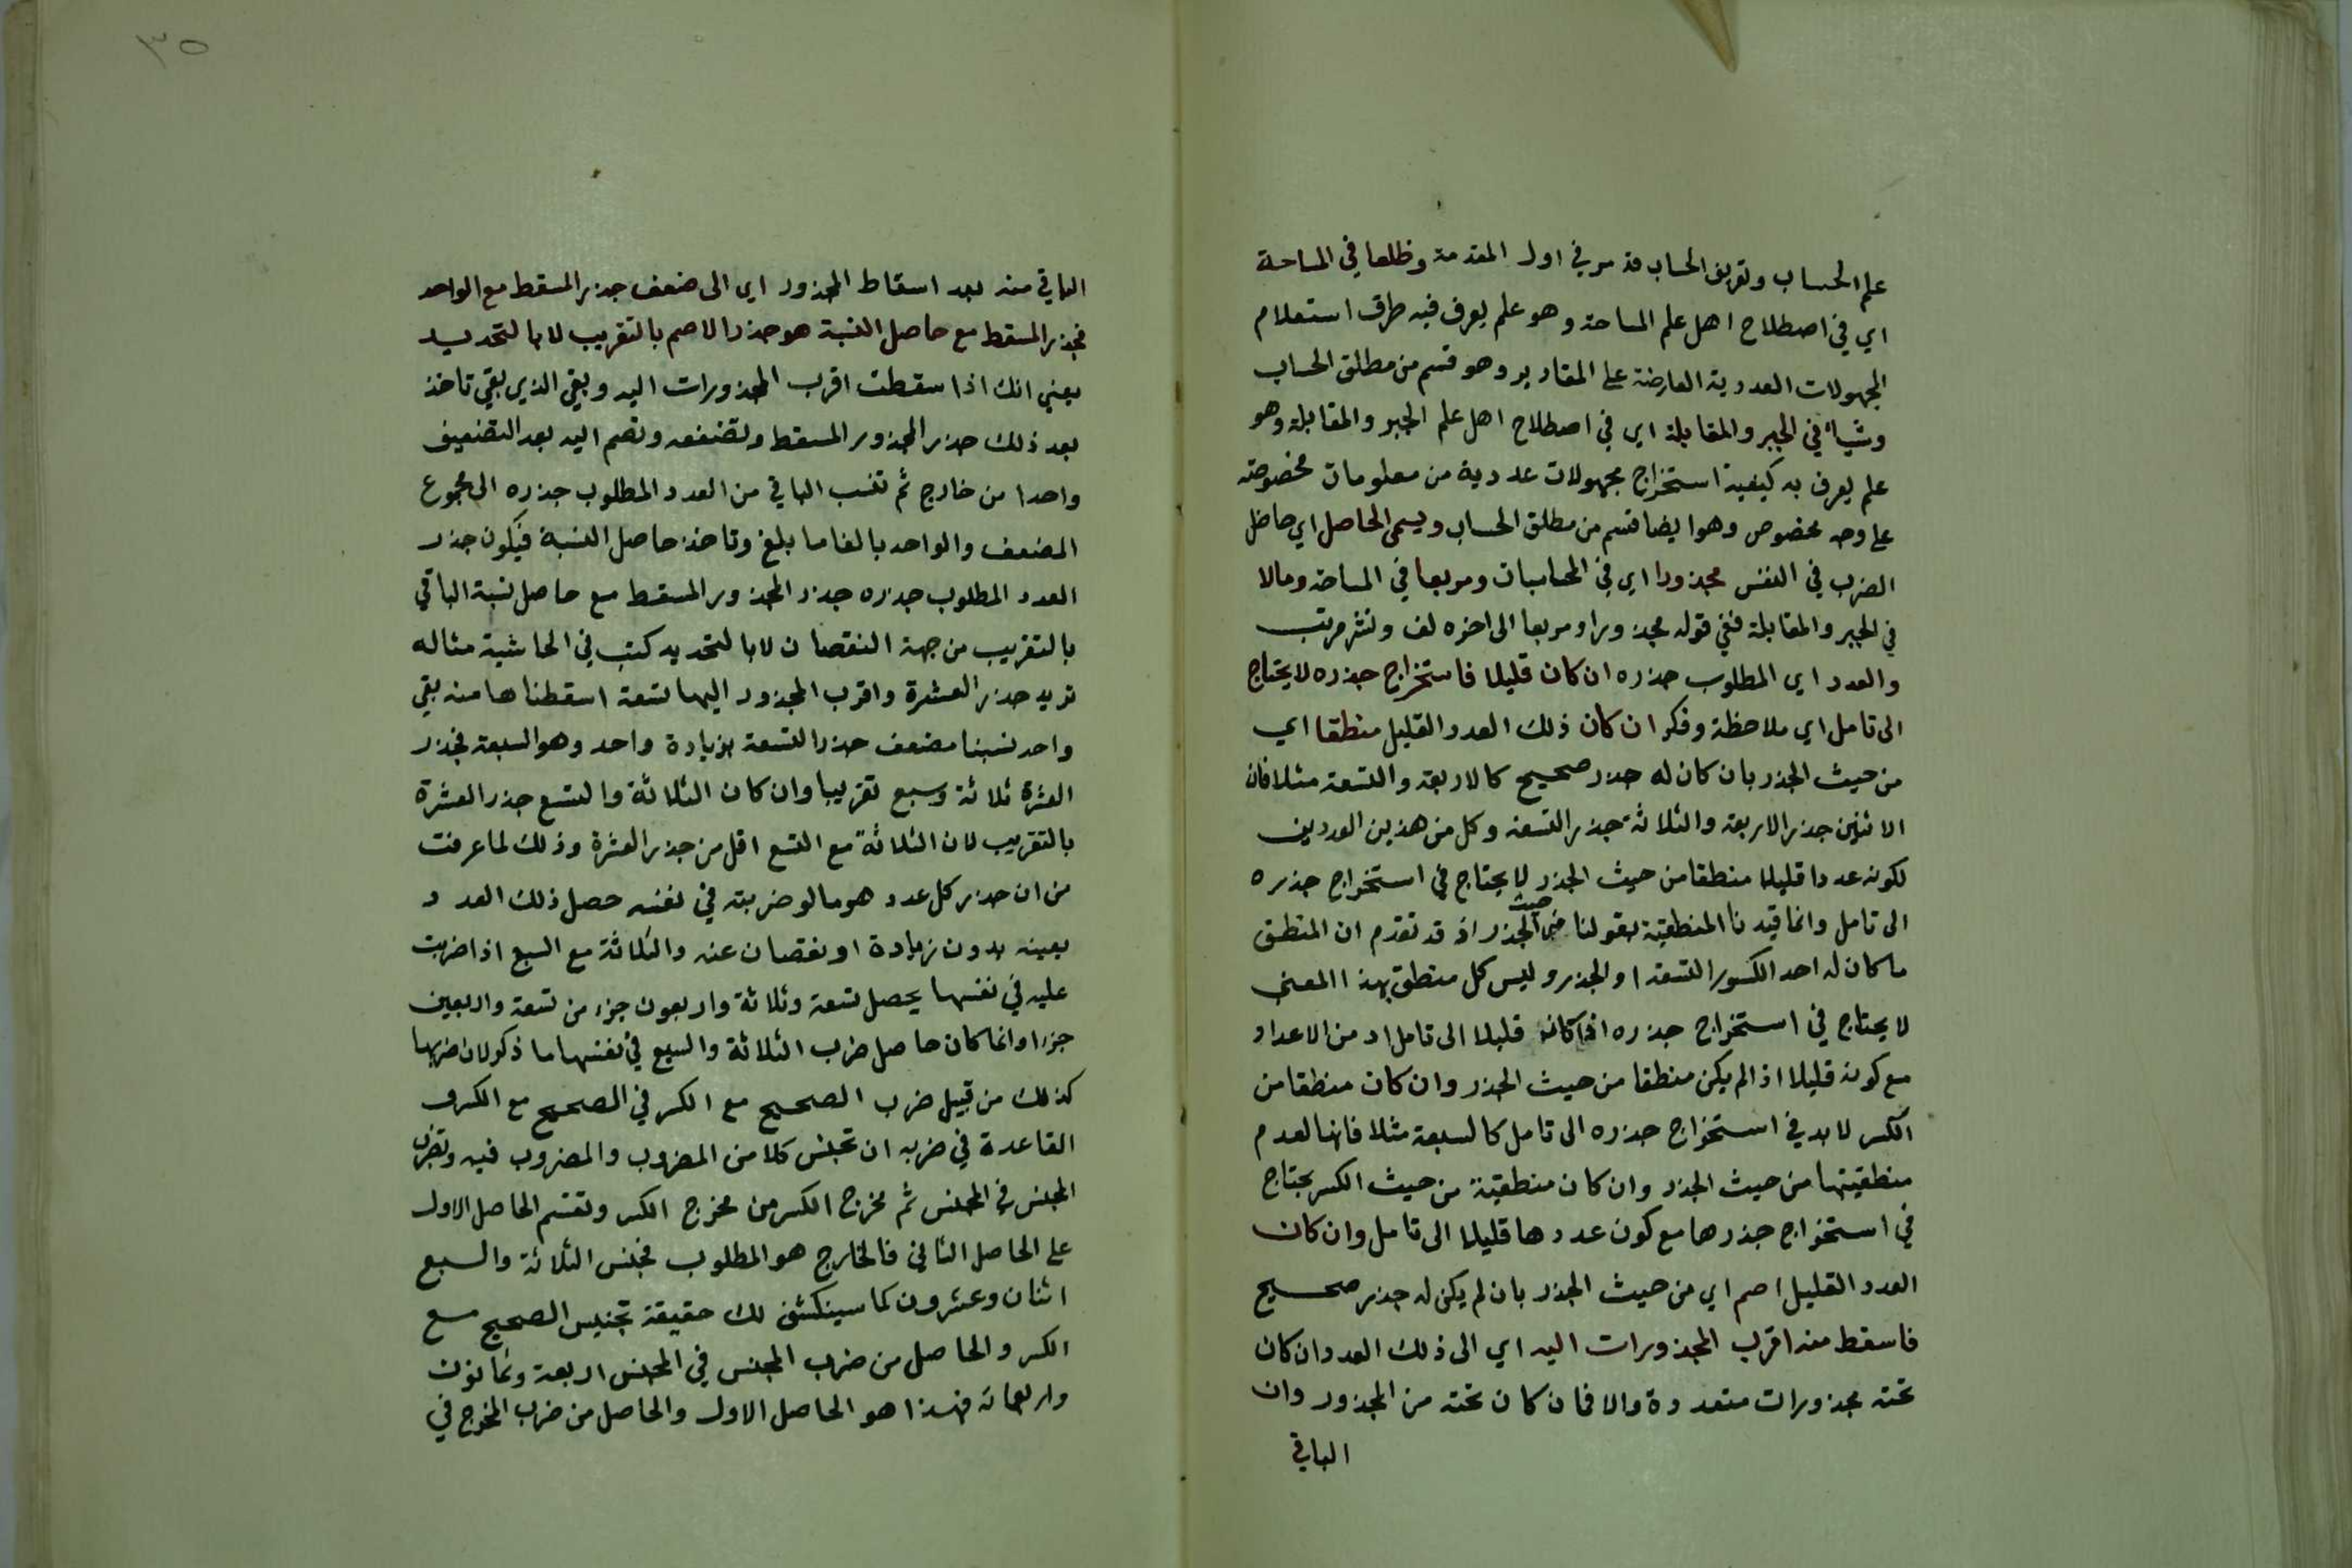 علم الحساب وتعريف الحساب قد مر في اول المقدمة وظلعا في المساحة
اي في اصطلاح اهل علم المساحة وهو علم يعرف فيه طرق استعلام
المجهولات العددية العارضة على المقادير وهو قسم من مطلق الحساب
وشيأ في الجبر والمقابلة اي في اصطلاح اهل علم الجبر والمقابلة وهو
علم يعرف به كيفية استخراج مجهولات عددية من معلومات مخصوصة
على وجه مخصوص وهو ايضا قسم من مطلق الحساب ويسمى الحاصل اي حاصل
الضرب في النفس مجذورا اي في المحاسبات ومربعا في المساحة ومالا
في الجبر والمقابلة ففي قوله مجذورا ومربعا الى اخره لف ونشر مرتب
والعدد اي المطلوب جذره ان كان قليلا فاستخراج جذره لا يحتاج
الى تامل اي ملاحظة وفكر ان كان ذلك العدد القليل منطقا اي
من حيث الجذر بان كان له جذر صحيح كالاربعة والتسعة مثلا فان
الاثنين جذر الاربعة والثلاثة جذر التسعة وكل من هذين العددين
لكونه عددا قليلا منطقا من حيث الجذر لا يحتاج في استخراج جذره
الى تامل وانما قيدنا المنطقية بقولنا من حيث الجذر اذ قد تقدم ان المنطق
ما كان له احد الكسور التسعة او الجذر وليس كل منطق بهذا المعنى
لا يحتاج في استخراج جذره اذا كان قليلا الى تامل اد من الاعداد
مع كونه قليلا اذا لم يكن منطقا من حيث الجذر وان كان منطقا من
الكسر لا بد في استخراج جذره الى تامل كالسبعة مثلا فانها لعدم
منطقيتها من حيث الجذر وان كان منطقية من حيث الكسر يحتاج
في استخراج جذرها مع كون عددها قليلا الى تامل وان كان
العدد القليل اصم اي من حيث الجذر بان لم يكن له جذر صحيح
فاسقط منه اقرب المجذورات اليه اي الى ذلك العدد ان كان
تحته مجذورات متعددة والا فان كان تحته من المجذور وان
الباقي
٣٥
الباقي منه بعد اسقاط المجذور اي الى ضعف جذر المسقط مع الواحد
فجذر المسقط مع حاصل النسبة هو جذر الاصم بالتقريب لا بالتحديد
يعني انك اذا اسقطت اقرب المجذورات اليه وبقي الذي بقي تاخذ
بعد ذلك جذر المجذور المسقط وتضعفه وتضم اليه بعد التضعيف
واحدا من خارج ثم تنسب الباقي من العدد المطلوب جذره الى مجموع
المضعف والواحد بالغا ما بلغ وتاخذ حاصل النسبة فيكون جذر
العدد المطلوب جذره جذر المجذور المسقط مع حاصل نسبة الباقي
بالتقريب من جهة النقصان لا بالتحديد كتب في الحاشية مثاله
نريد جذر العشرة واقرب المجذور اليها تسعة اسقطناها منه بقي
واحد نسبنا مضعف جذر التسعة بزيادة واحد وهو السبعة فجذر
العشرة ثلاثة وسبع تقريبا وان كان الثلاثة والتسع جذر العشرة
بالتقريب لان الثلاثة مع التسع اقل من جذر العشرة وذلك لما عرفت
من ان جذر كل عدد هو ما لو ضربته في نفسه حصل ذلك العدد
بعينه بدون زيادة او نقصان عنه والثلاثة مع السبع اذا ضربت
عليه في نفسها يحصل تسعة وثلاثة واربعون جزء من تسعة واربعين
جزءا وانما كان حاصل ضرب الثلاثة والسبع في نفسها ما ذكر لان ضربها
كذلك من قبيل ضرب الصحيح مع الكسر في الصحيح مع الكسر و
القاعدة في ضربه ان تجنس كلا من المضروب والمضروب فيه وتضرب
المجنس في المجنس ثم مخرج الكسر من مخرج الكسر وتقسم الحاصل الاول
على الحاصل الثاني فالخارج هو المطلوب فمجنس الثلاثة والسبع
اثنان وعشرون كما سينكشف لك حقيقة تجنيس الصحيح مع
الكسر والحاصل من ضرب المجنس في المجنس اربعة وثمانون
واربعمائة فهذا هو الحاصل الاول والحاصل من ضرب المخرج في